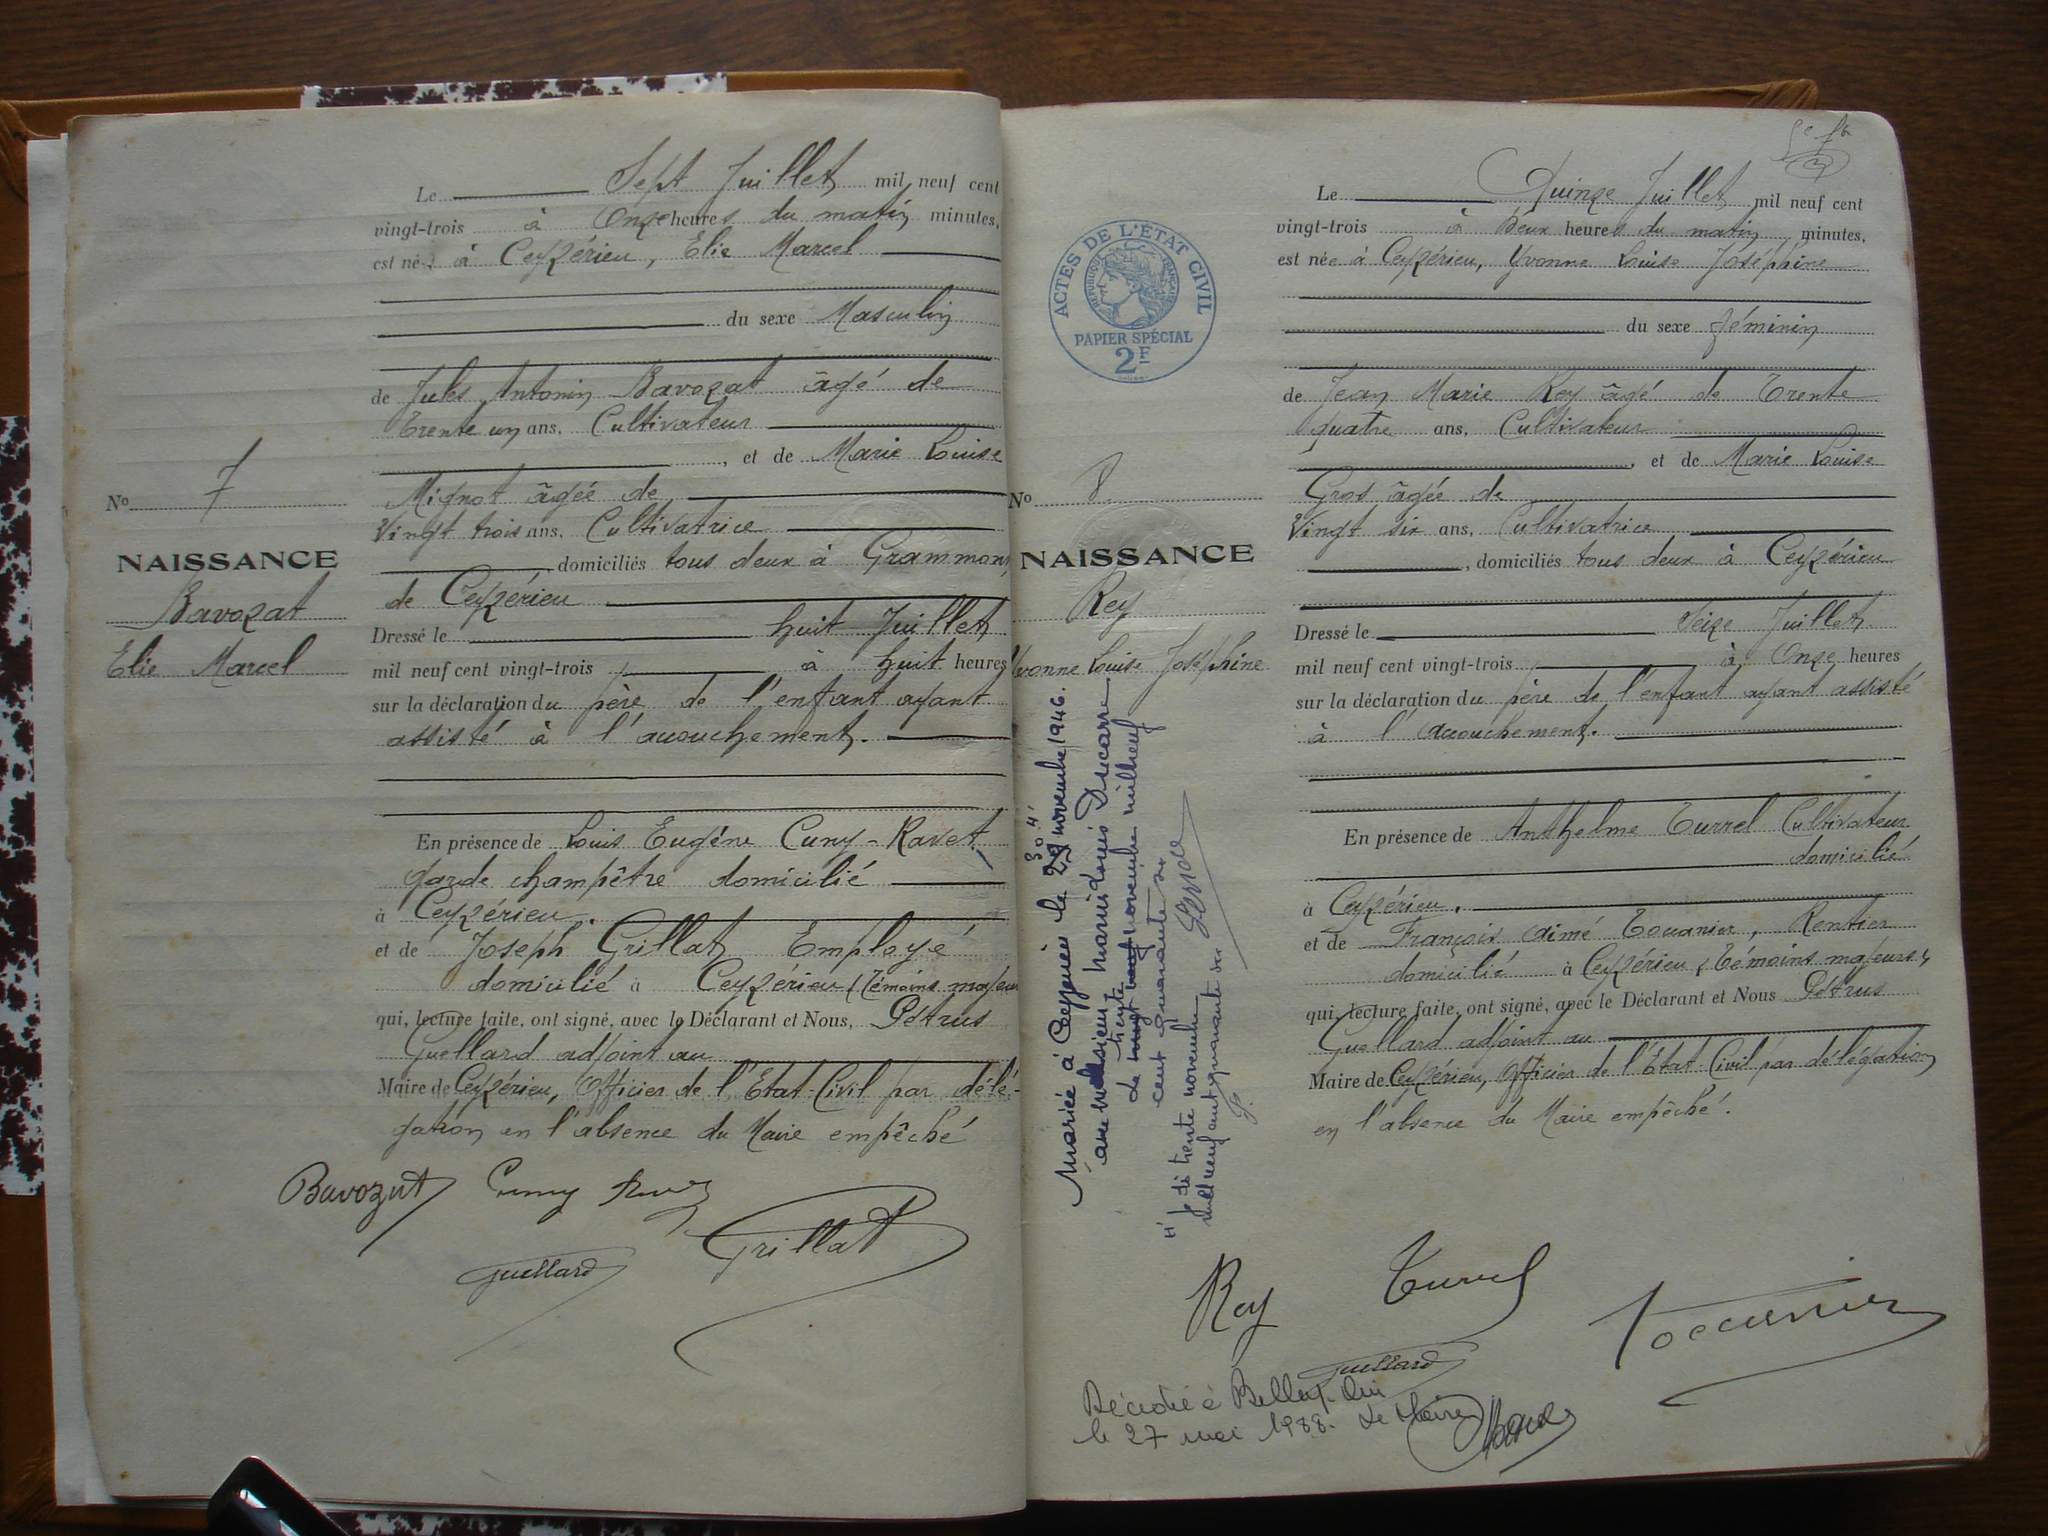 Le Sept Juillet mil neuf cent
vingt-trois à Onze heures du matin minutes,
est né à Ceyzérieu, Elie Marcel
du sexe Masculin
de Jules Antonin Bavozat âgé de
Trente un ans, Cultivateur
, et de Marie Louise
Mignot âgée de
Vingt trois ans, Cultivatrice
, domiciliés tous deux à Grammont
de Ceyzérieu
Dressé le huit Juillet
mil neuf cent vingt-trois à huit heures
sur la déclaration du père de l'enfant ayant
assisté à l'acouchement.
En présence de Louis Eugène Cuny-Ravet,
garde champêtre domicilié
à Ceyzérieu.
et de Joseph Grillat Employé
domicilié à Ceyzérieu, Témoins majeurs
qui, lecture faite, ont signé, avec le Déclarant et Nous, Pétrus
Guellard adjoint au
Maire de Ceyzérieu, Officier de l'Etat-Civil par délé-
gation en l'absence du Maire empêché
No 7
NAISSANCE
Bavozat
Elie Marcel
Bavozat Cuny
Guellard Grillat
Le Quinze Juillet mil neuf cent
vingt-trois à Deux heures du matin minutes,
est née à Ceyzérieu, Yvonne Louise Joséphine
du sexe féminin
de Jean Marie Rey âgé de Trente
quatre ans, Cultivateur
, et de Marie Louise
Gros âgée de
Vingt six ans, Cultivatrice
, domiciliés tous deux à Ceyzérieu
Dressé le Seize Juillet
mil neuf cent vingt-trois à Onze heures
sur la déclaration du père de l'enfant ayant assisté
à l'acouchement.
En présence de Anthelme Turrel Cultivateur
domicilié
à Ceyzérieu.
et de François Aimé Touanier, Rentier
domicilié à Ceyzérieu, Témoins majeurs,
qui, lecture faite, ont signé, avec le Déclarant et Nous Pétrus
Guellard adjoint au
Maire de Ceyzérieu, Officier de l'Etat-Civil par délégation
en l'absence du Maire empêché.
ACTES DE L'ÉTAT CIVIL
RÉPUBLIQUE FRANÇAISE
PAPIER SPÉCIAL
2F
No 8
NAISSANCE
Rey
Yvonne Louise Joséphine
Mariée à Ceyzérieu le 29 novembre 1946.
30 "
avec monsieur Marius Louis Ducarre
trente
le vingt neuf novembre mil neuf
cent quarante six
" je dis trente novembre
mil neuf cent quarante six
Rey Turrel
Guellard
Décédée à Belley Ain
le 27 mai 1988. Le Maire